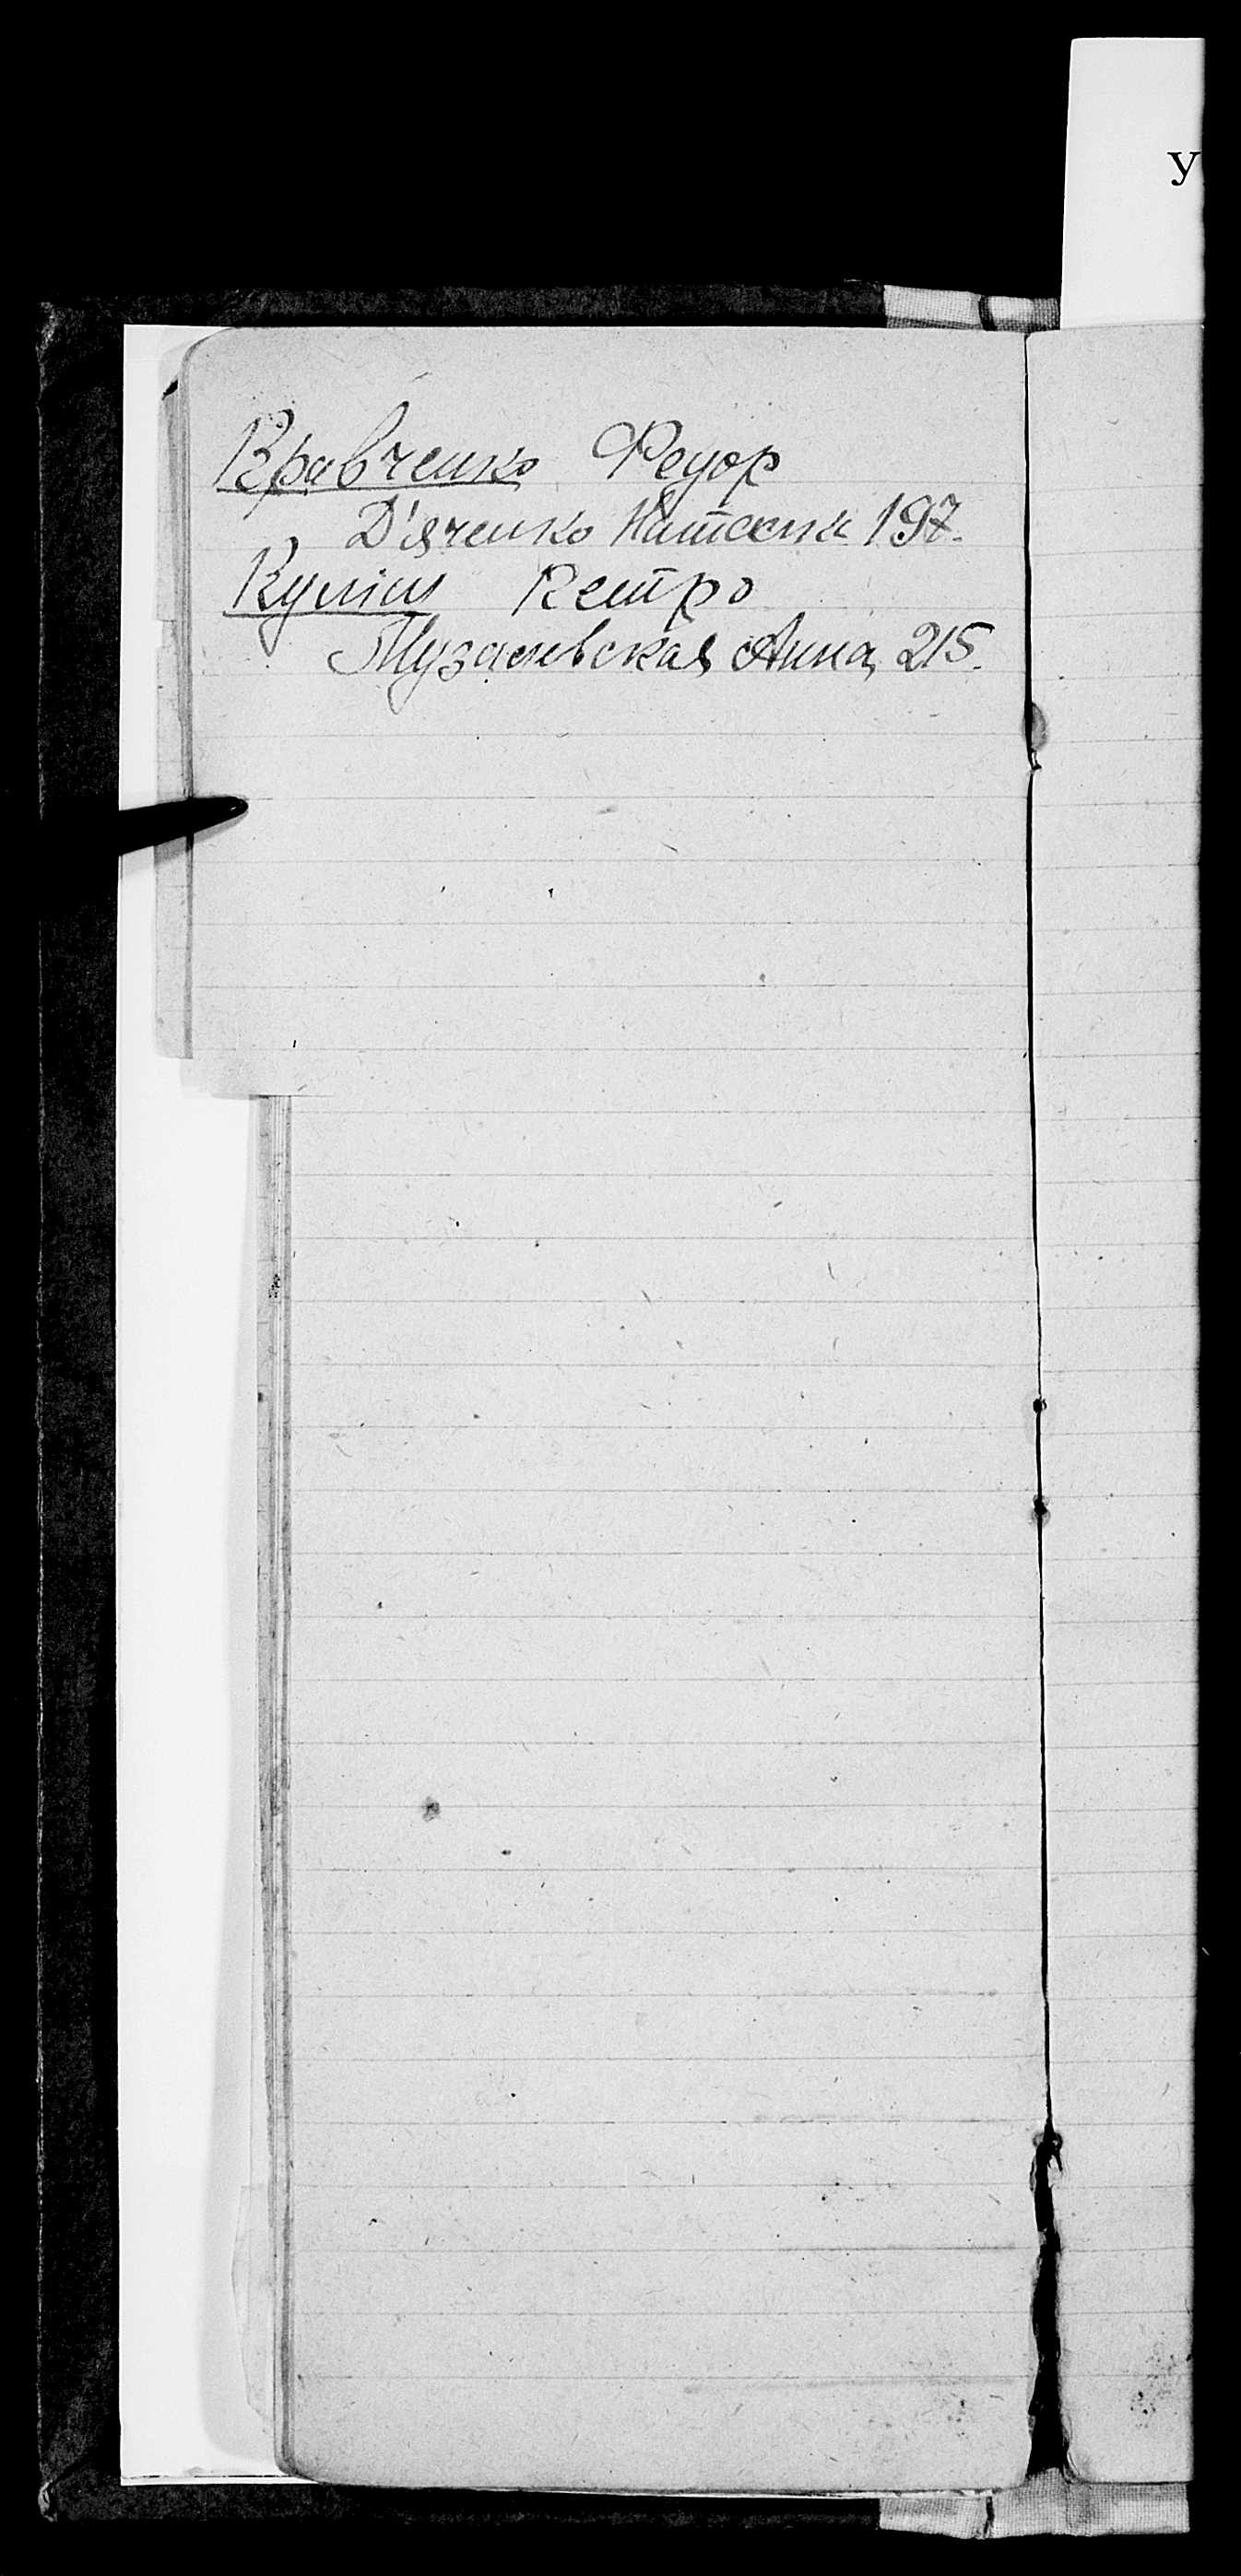 У
Кравченко Федор
Д'яченко Наталка 197.
Куліш Петро
Музалевская Анна, 215.